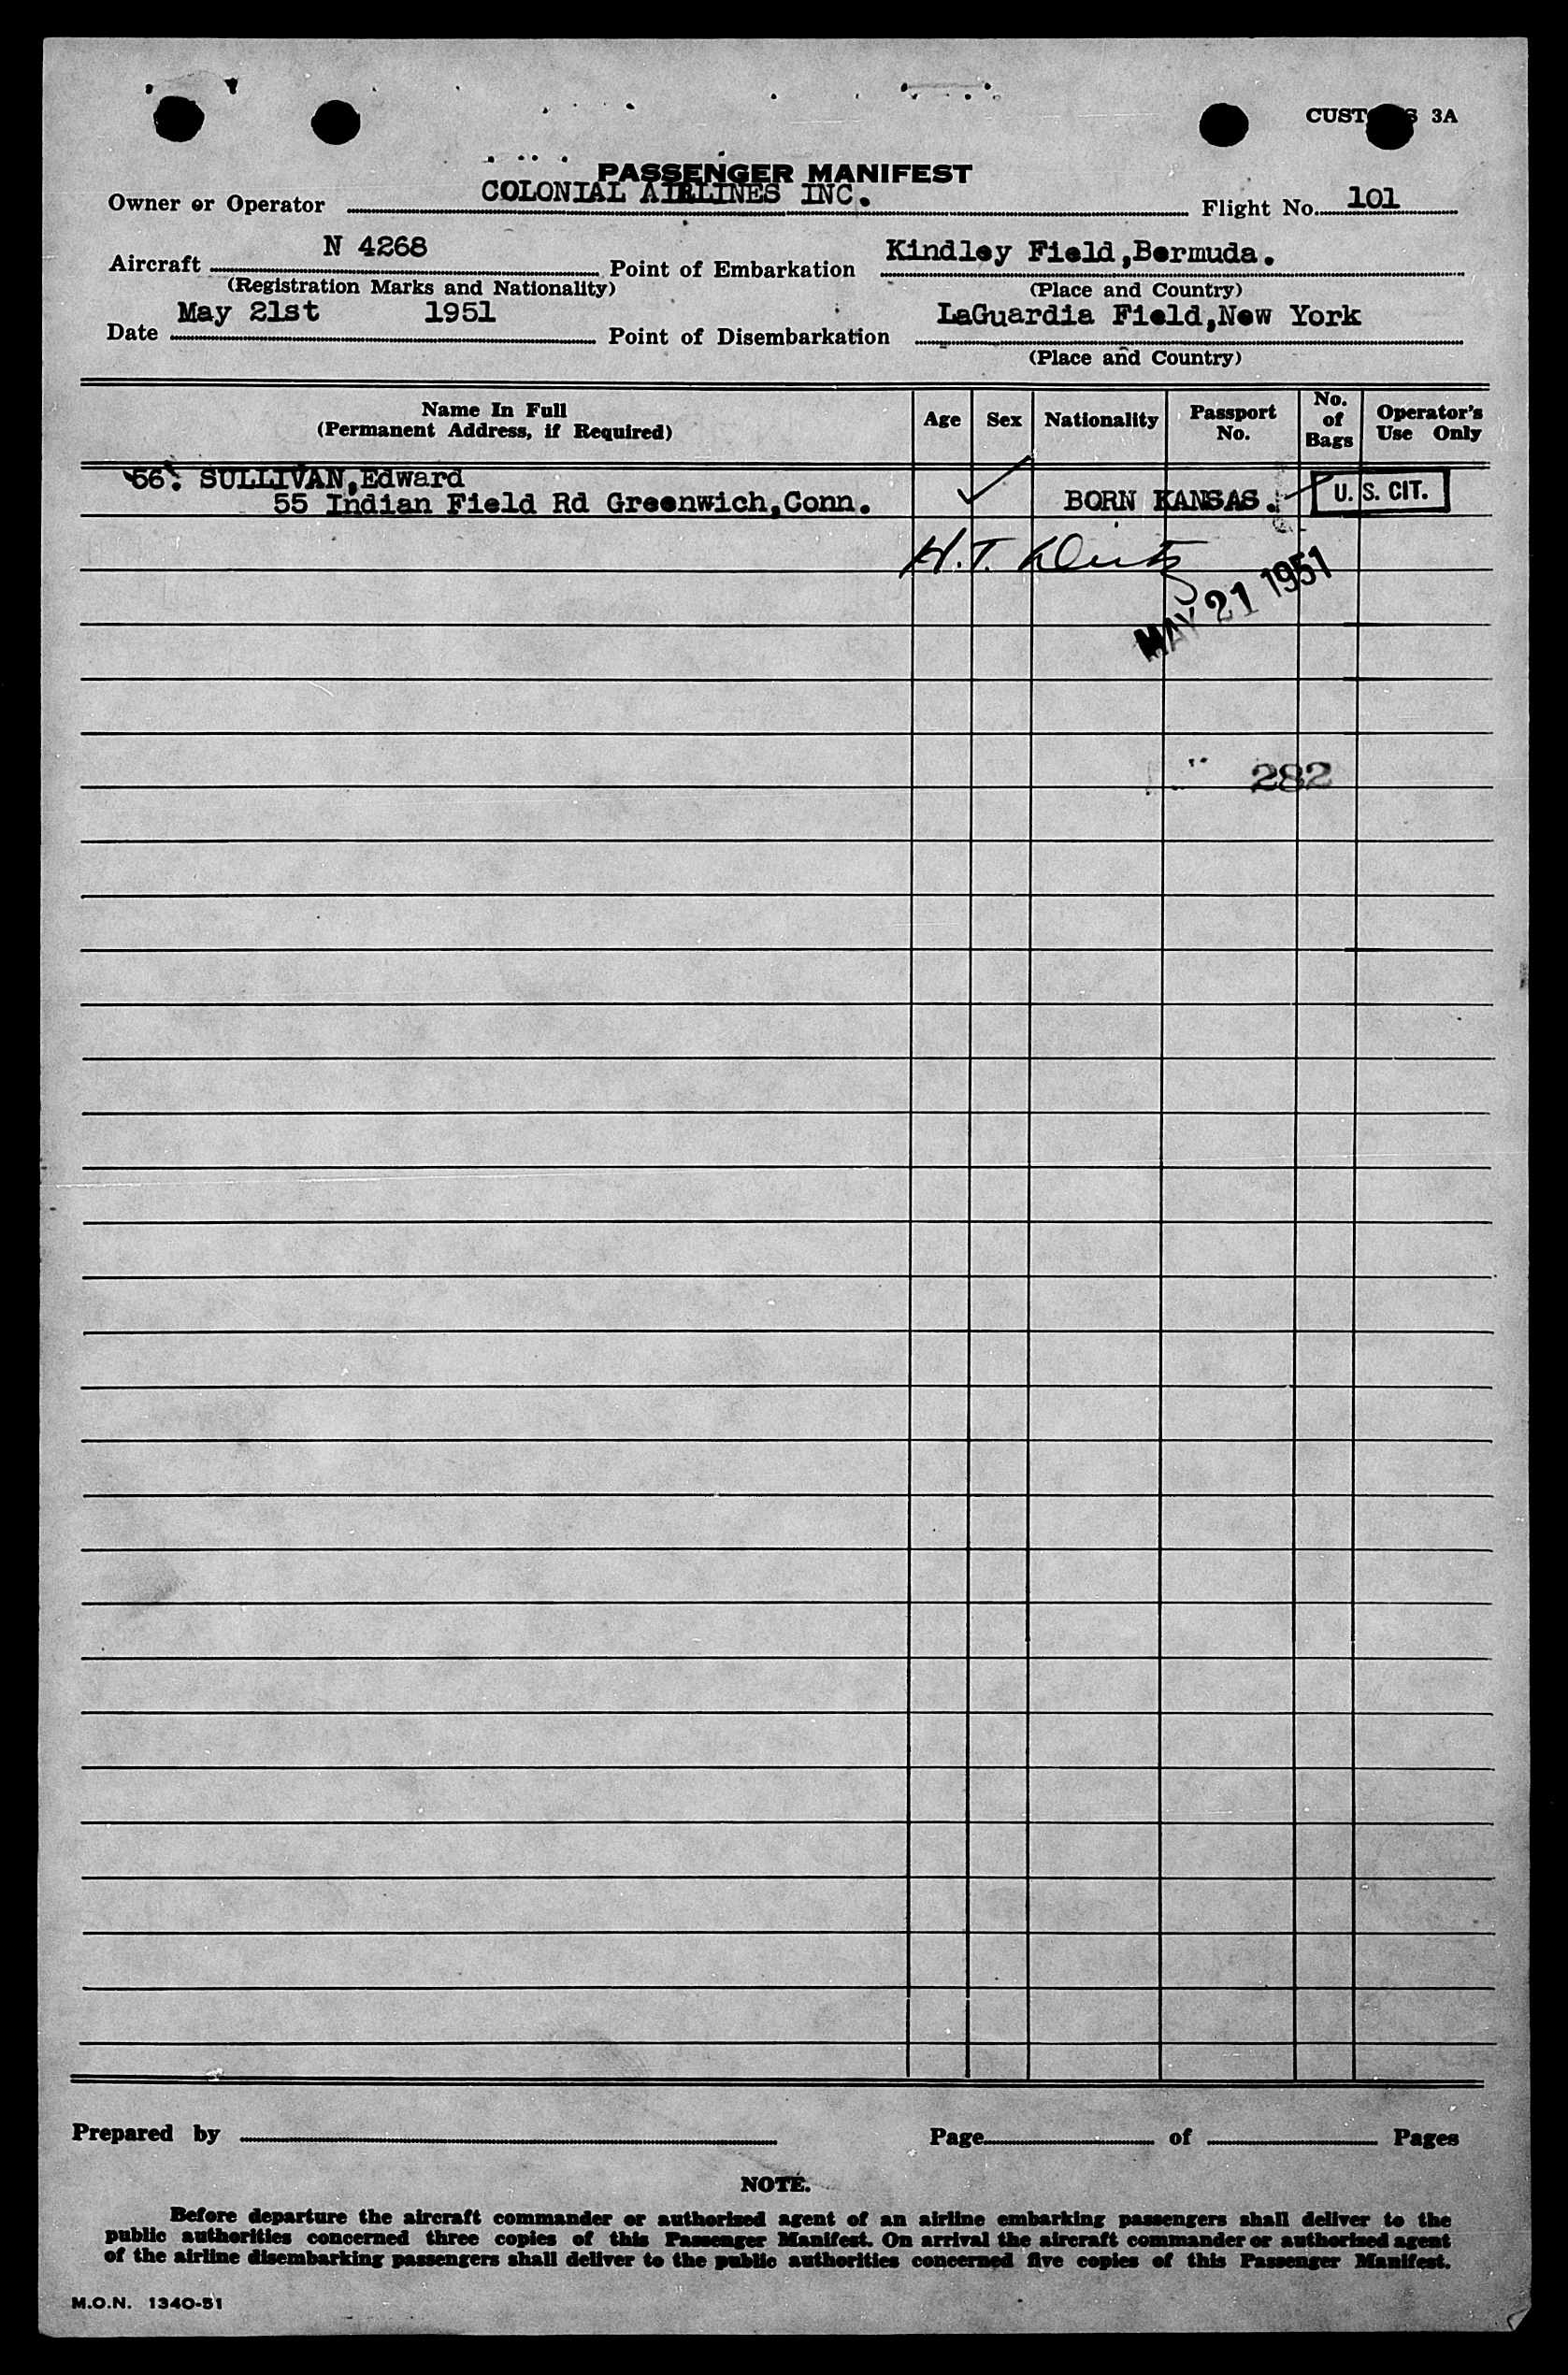 CUST S 3A
PASSENGER MANIFEST
Owner or Operator COLONIAL AIRLINES INC. Flight No. 101
Aircraft N 4268 Point of Embarkation Kindley Field,Bermuda.
(Registration Marks and Nationality) (Place and Country)
Date May 21st 1951 Point of Disembarkation LaGuardia Field,New York
(Place and Country)
Name In Full
(Permanent Address, if Required)
Age Sex Nationality Passport No. No. of Bags Operator's Use Only
56. SULLIVAN,Edward
55 Indian Field Rd Greenwich,Conn. BORN KANSAS. U.S. CIT.
H.T.
MAY 21 1951
282
Prepared by Page of Pages
NOTE.
Before departure the aircraft commander or authorised agent of an airline embarking passengers shall deliver to the
public authorities concerned three copies of this Passenger Manifest. On arrival the aircraft commander or authorised agent
of the airline disembarking passengers shall deliver to the public authorities concerned five copies of this Passenger Manifest.
M.O.N. 1340-51